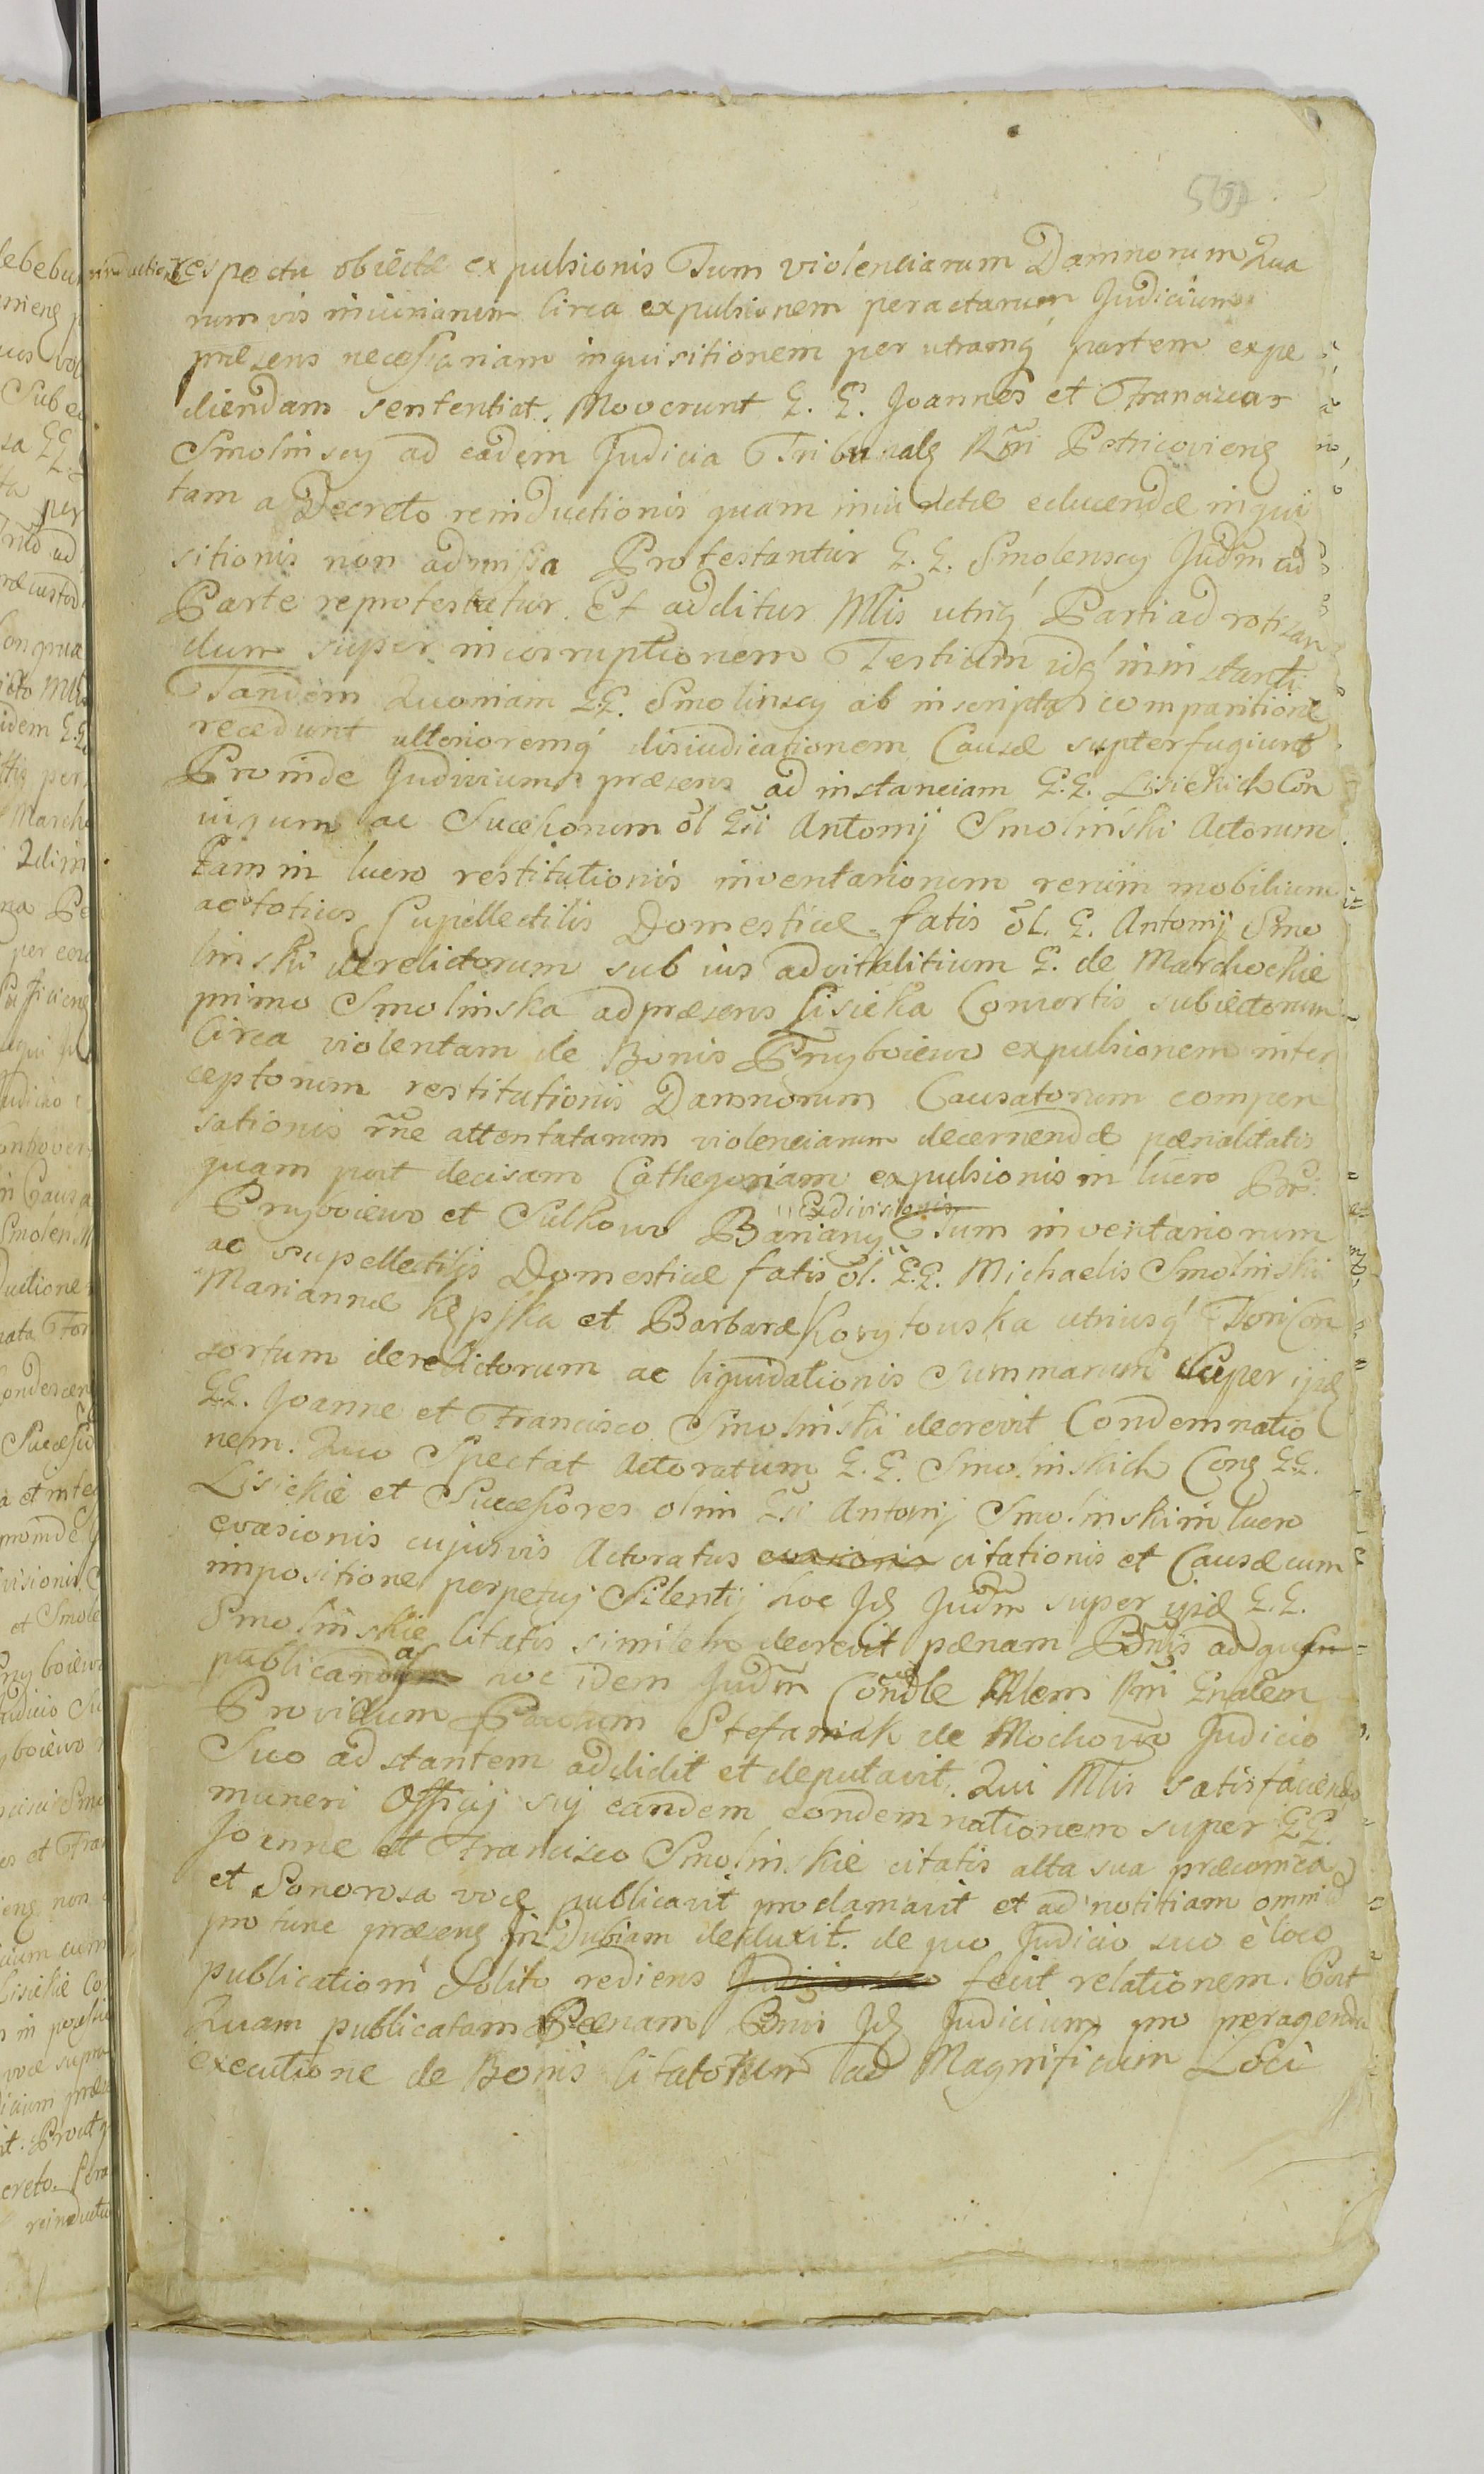 respectu obiectæ expulsionis Tum violenciarum Damnorum Qua
rumvis iniuriarum Circa expulsionem peractarum Judicium
præsens necessariam inquisitionem per utramq́ partem expe
diendam sententiat. Moverunt G. G. Joannes et Franciscus
Smolinscy ad eadem Judicia Tribunalẹ Rñi Petricovienẹ
tam a Decreto reinductionis quam iniunctæ educendæ inqui
sitionis non admissa Protestantur G. G. Smolenscy Judm̃ ad
Parte reprotestatur. Et additur Mlis utriq́ Parti ad rotizan
dum super incorruptionem Testium idq́ in instanti
Tandem Quoniam G.G. Smolinscy ab inscripta comparitione
recedunt ulterioremq́ disiudicationem Causæ supterfugiunt
Proinde Judicium præsens ad instanciam G.G. Lisickich Con
iugum ac Successorum õl Gñi Antonij Smolinski Actorum
tam in luero restitutionis inventariorum rerum mobilium
ac totius Supellectilis Domesticæ fatis õl. G. Antonij Smo
linski derelictorum sub ius advitalitium G. de Marchockie
primo Smolinska ad præsens Lisicka Consortis subiectorum
Circa violentam de Bonis Przyboiewo expulsionem inter
ceptorum restitutionis Damnorum Causatorum compen
sationis rñe attentatarum violenciarum decernendæ pœnalitatis
quam post decisam Cathegoriam expulsionis in luero Bon̄.
Exdivisionis
Przyboiewo et Sulkowo Bariany Tum inventariorum
ac supellectilis Domesticæ fatis õl. G.G. Michaelis Smolinski
Mariannæ Kępska et Barbaræ Korytouska utriusq́ Tori Con
sortum derelictorum ac liquidationis Summarum Super ijsdẹ
G.G. Joanne et Francisco Smolinskii decrevit Condemnatio
nem. Quo Spectat Actoratum G. G. Smolinskich Conẹ G.G.
Lisickie et Successores olim Gñi Antonij Smolinski in luero
evasionis cujusvis Actoratus evasionis citationis et Causæ cum
impositione perpetuj Silentij hoc Jdẹ Judm̃ super ijsdẹ G. G.
Smolinskie Citatis similem decrevit pænam Bñis ad quam
as
publicandam hoc idem Judm̃ Condle Mlem Rñi Gnalem
Providum Paulum Stefaniak de Mochowo Judicio
Suo adstantem addidit et deputavit. Qui Mlis satisfaciendo
muneri Officij suj eandem condemnationem super G.G.
Joanne et Francisco Smolinskie citatis alta sua præconica
et Sonorosa voce publicavit proclamavit et ad notitiam omni
pro tunc præsenẹ in Dubiam deduxit. de quo Judicio suo è loco
publicationi Solito rediens Judicio suo fecit relationem. Post
Quam publicatam Pænam Bñis Jdẹ Judicium pro peragenda
executione de Bonis Citatorum ad Magnificum Loci